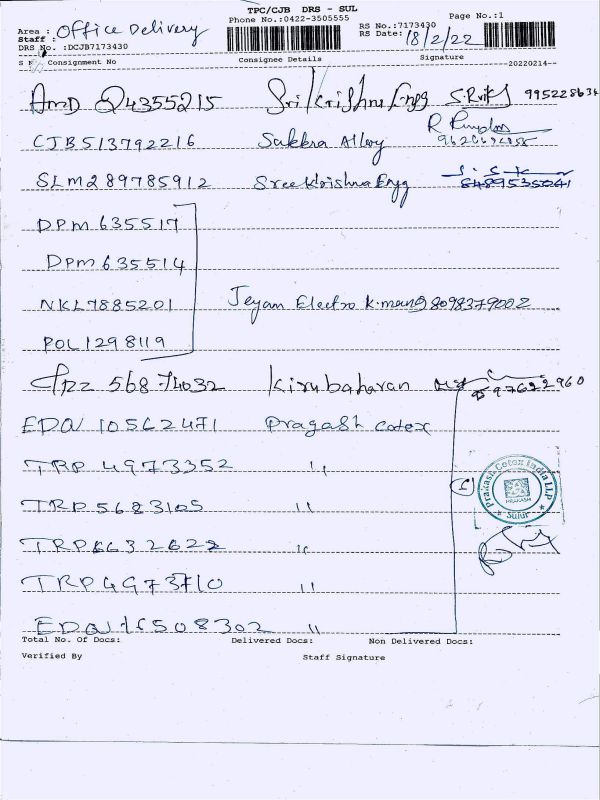 TPC/CJB DRS - SUL
Phone No.:0422-3505555
Page No.:1
Area : Office Delivery
Staff :
RS No.:7173430
RS Date: 18/2/22
DRS No. :DCJB7173430
Consignment No Consignee Details Signature --20220214--
AMD Q4355215 Sri Krishna Engg 995228634
CJB513792216 Sakkra Alloy
SLM289785912 Sree Krishna Engg 8489535041
DPM 635517
DPM 635514
NKL7885201 Jeyam Electro K.mang 98098379002
POL1298119
568 74032 Kirubaharan 97622960
EDQ 10562471 Pragash Cotex
TRP 4973352 "
TRP 5683105 "
TRP6632622 "
TRP4973710 "
EDQ 16508302 "
Prakash Cotex India LLP
PRAKASH
* Sulur *
Total No. Of Docs: Delivered Docs: Non Delivered Docs:
Verified By Staff Signature